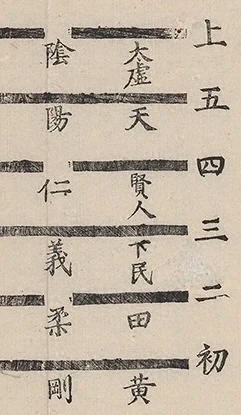 上五四三二初
太虛天賢人下民田黃
陰陽仁義柔剛